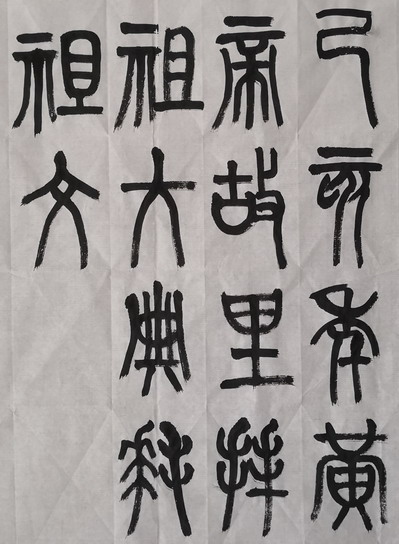 己亥年黄
帝故里拜
祖大典拜
祖文